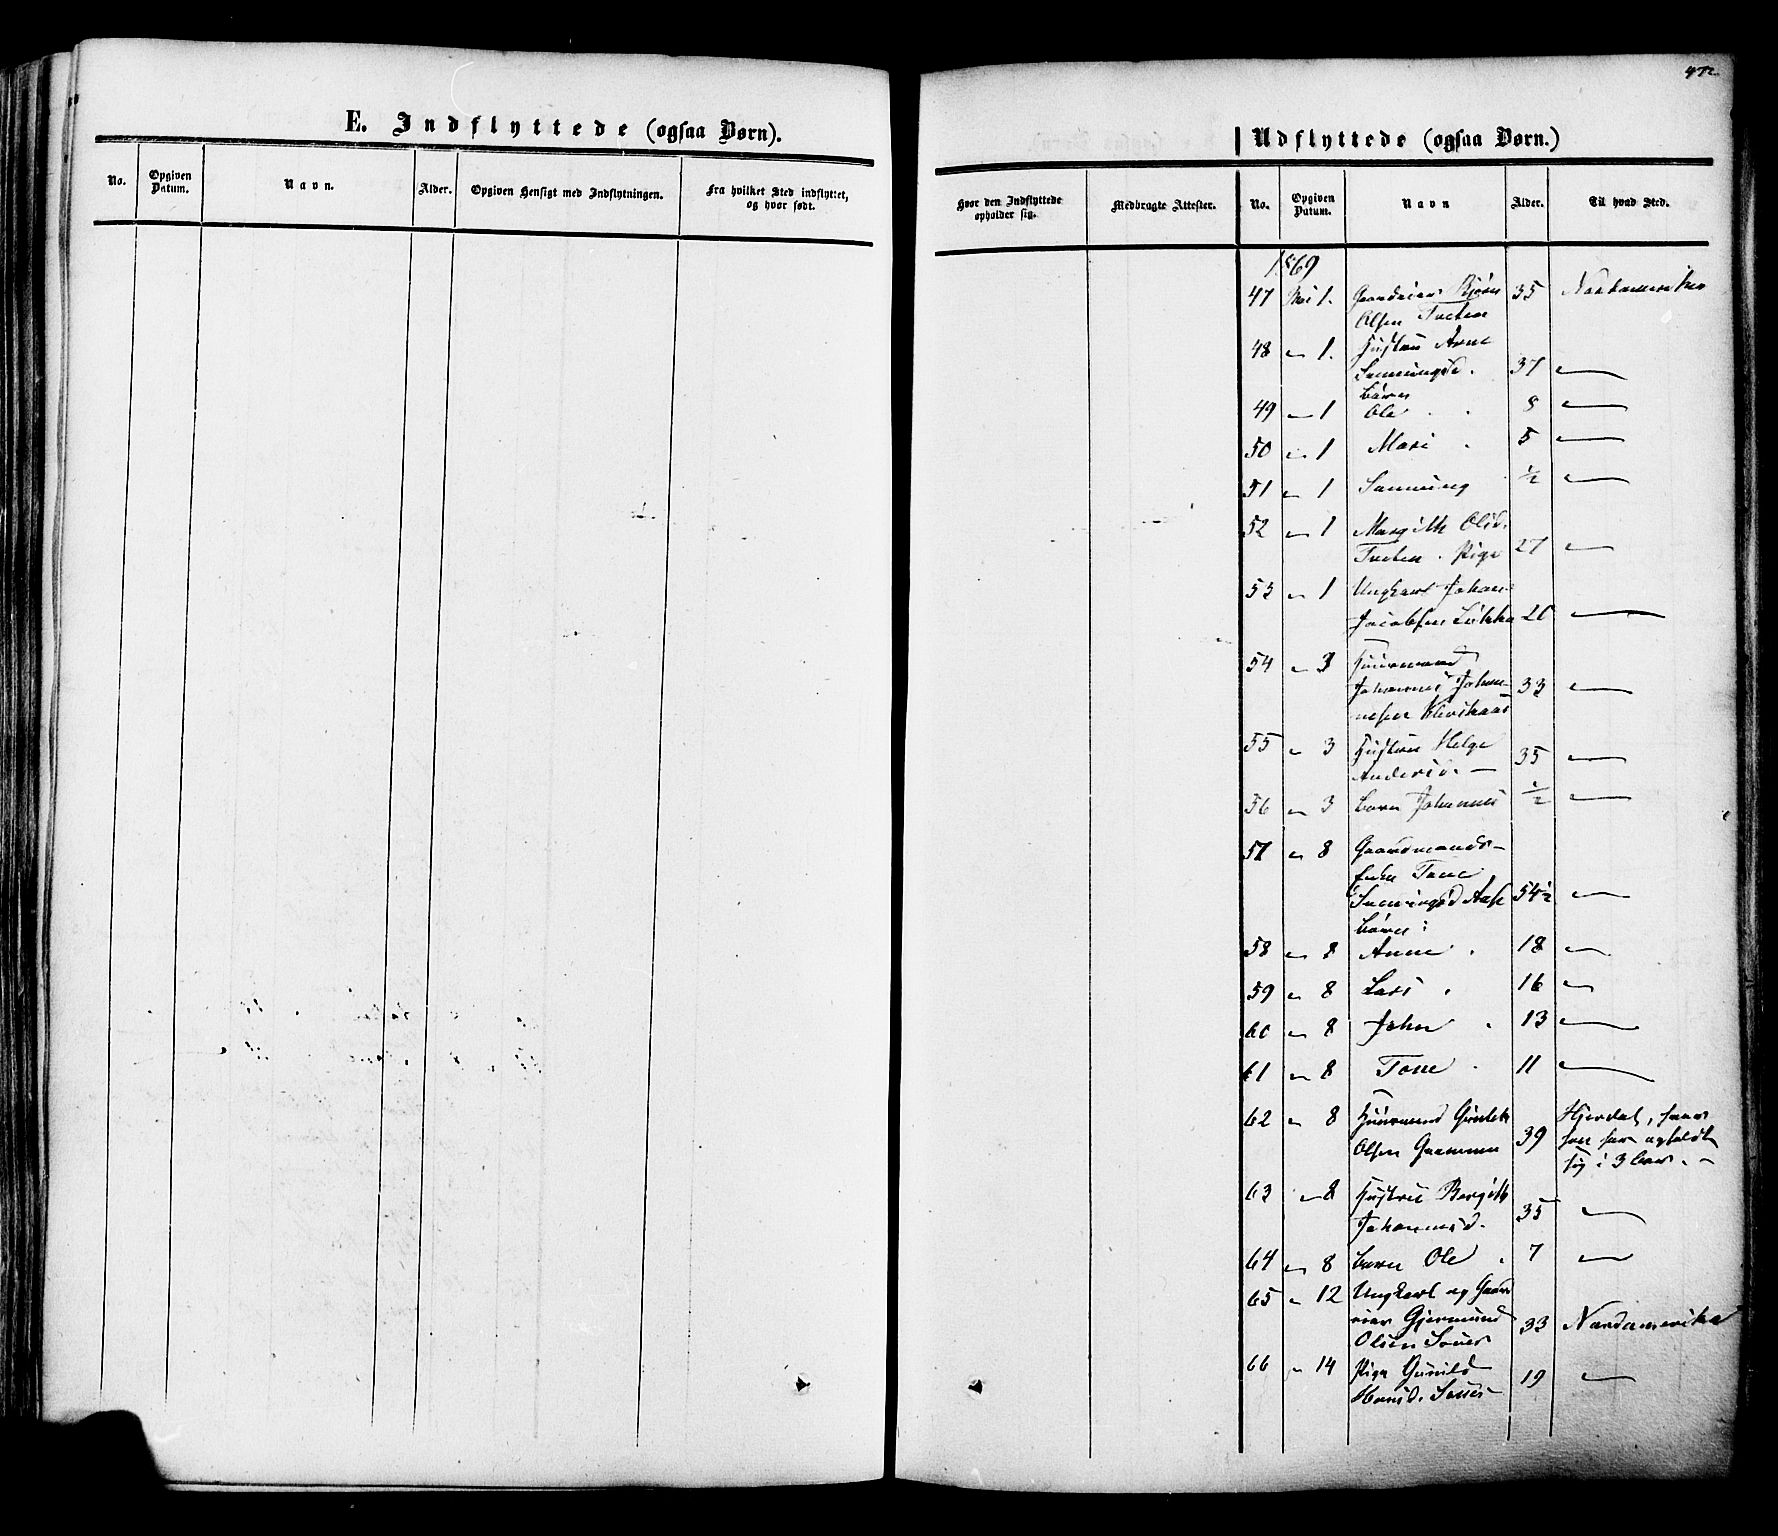 472
E. Indflyttede (ogsaa Børn).
No.
Opgiven Datum.
Navn.
Alder.
Opgiven Hensigt med Indflytningen.
Fra hvilket Sted indflyttet, og hvor født.
Udflyttede (ogsaa Børn.)
Hvor den Indflyttede opholder sig.
Medbragte Attester.
No.
Opgiven Datum.
Navn
Alder.
Til hvad Sted.
1869
47 Mai 1. Gaardeier Bjørn 35 Nordamerika
Olsen Tveten
48 " 1. Hustru Anne
37 "
Børn
49 " 1 Ole 8 "
50 " 1 Mari 5 "
51 " 1 ½ "
52 " 1 Margith Olsd.
Tveten. Pige 27 "
53 " 1 Ungkarl Johan
Jacobsen Løkka 20 "
54 " 3 Huusmand
Johannes Johan- 33 "
nesen
55 " 3 Hustru Helge
Andersd. — 35 "
56 " 3 Barn Johannes ½ "
57 " 8 Gaardmands-
Enke Tone
54½ "
Børn:
58 " 8 Anne 18 "
59 " 8 Lars 16 "
60 " 8 John 13 "
61 " 8 Tone 11 "
62 " 8 Huusmand Hjerdal, hvor
Olsen 39 han har opholdt
sig i 3 Aar. —
63 " 8 Hustru Bergith
Johannesd. 35 "
64 " 8 Barn Ole 7 "
65 " 12 Ungkarl og Gaar-
Gjermund 33 Nordamerika
Olsen
66 " 14 Pige Gunild
Hansd. 19 "